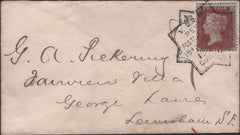 G. A. Pickering
Fairview Villa
George Lane
Lewisham S.E